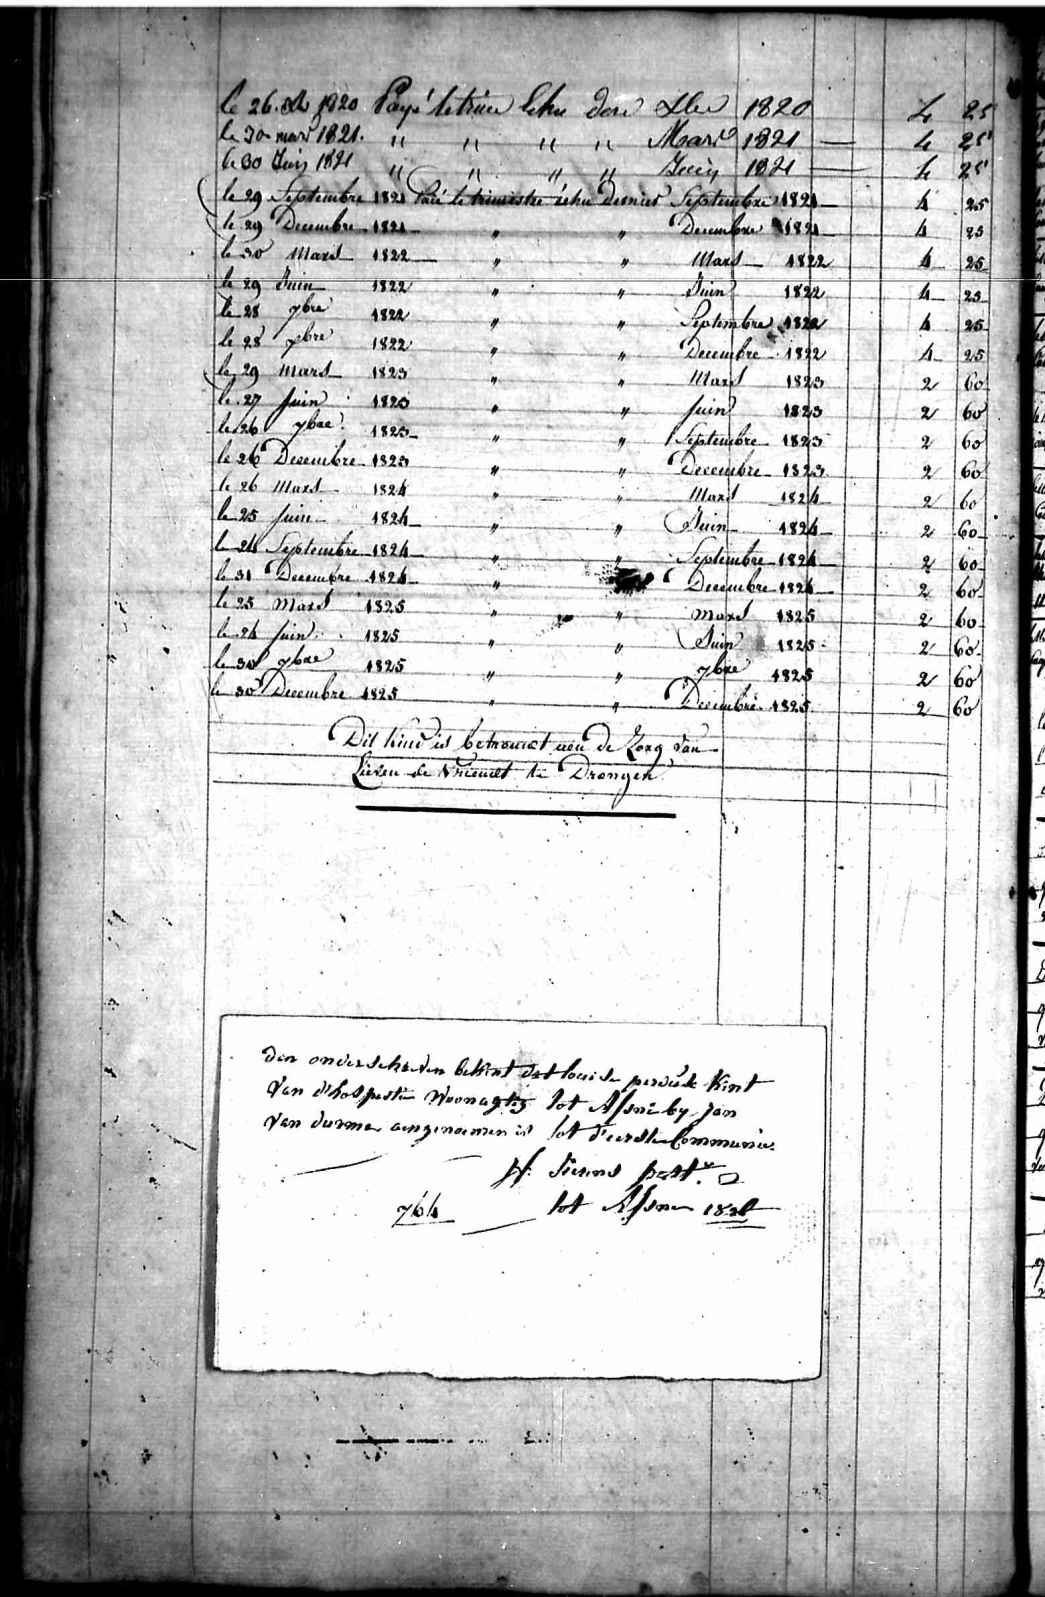 le 26 1820 Payé le trim echu dere Xbre 1820 4 25
le 30 mars 1821. " " " " Mars 1821 — 4 25
le 30 Juin 1821 " " " " Juin 1821 — 4 25
le 29 Septembre 1821 Paié le trimestre échu dernier Septembre 1821 4 25
le 29 Decembre 1821 " " Decembre 1821 4 25
le 30 Mars 1822 " " Mars 1822 4 25
le 29 Juin 1822 " " Juin 1822 4 25
le 28 7bre 1822 " " Septembre 1822 4 25
le 28 1822 " " Decembre 1822 4 25
le 29 Mars 1823 " " Mars 1823 2 60
le 27 Juin 1823 " " Juin 1823 2 60
le 26 7bre 1823 " " Septembre 1823 2 60
le 26 Decembre 1823 " " Decembre 1823 2 60
le 26 Mars 1824 " " Mars 1824 2 60
le 25 Juin 1824 " " Juin 1824 2 60
le Septembre 1824 " " Septembre 1824 2 60
le 31 Decembre 1824 " Decembre 1824 2 60
le 25 Mars 1825 " " Mars 1825 2 60
le 24 Juin 1825 " " Juin 1825 2 60
le 30 7bre 1825 " " 7bre 1825 2 60
le 30 Decembre 1825 " " Decembre 1825 2 60
Dit kind is betrouwt aen de Zorg van
Lieven de Vriendt te Drongen
den onderschreven bekent dat louise kint
van d'hospesti woonagtig tot Assne by Jan
van durme aengenoemen is tot d'eerste Communie.
past.
764 tot Assne